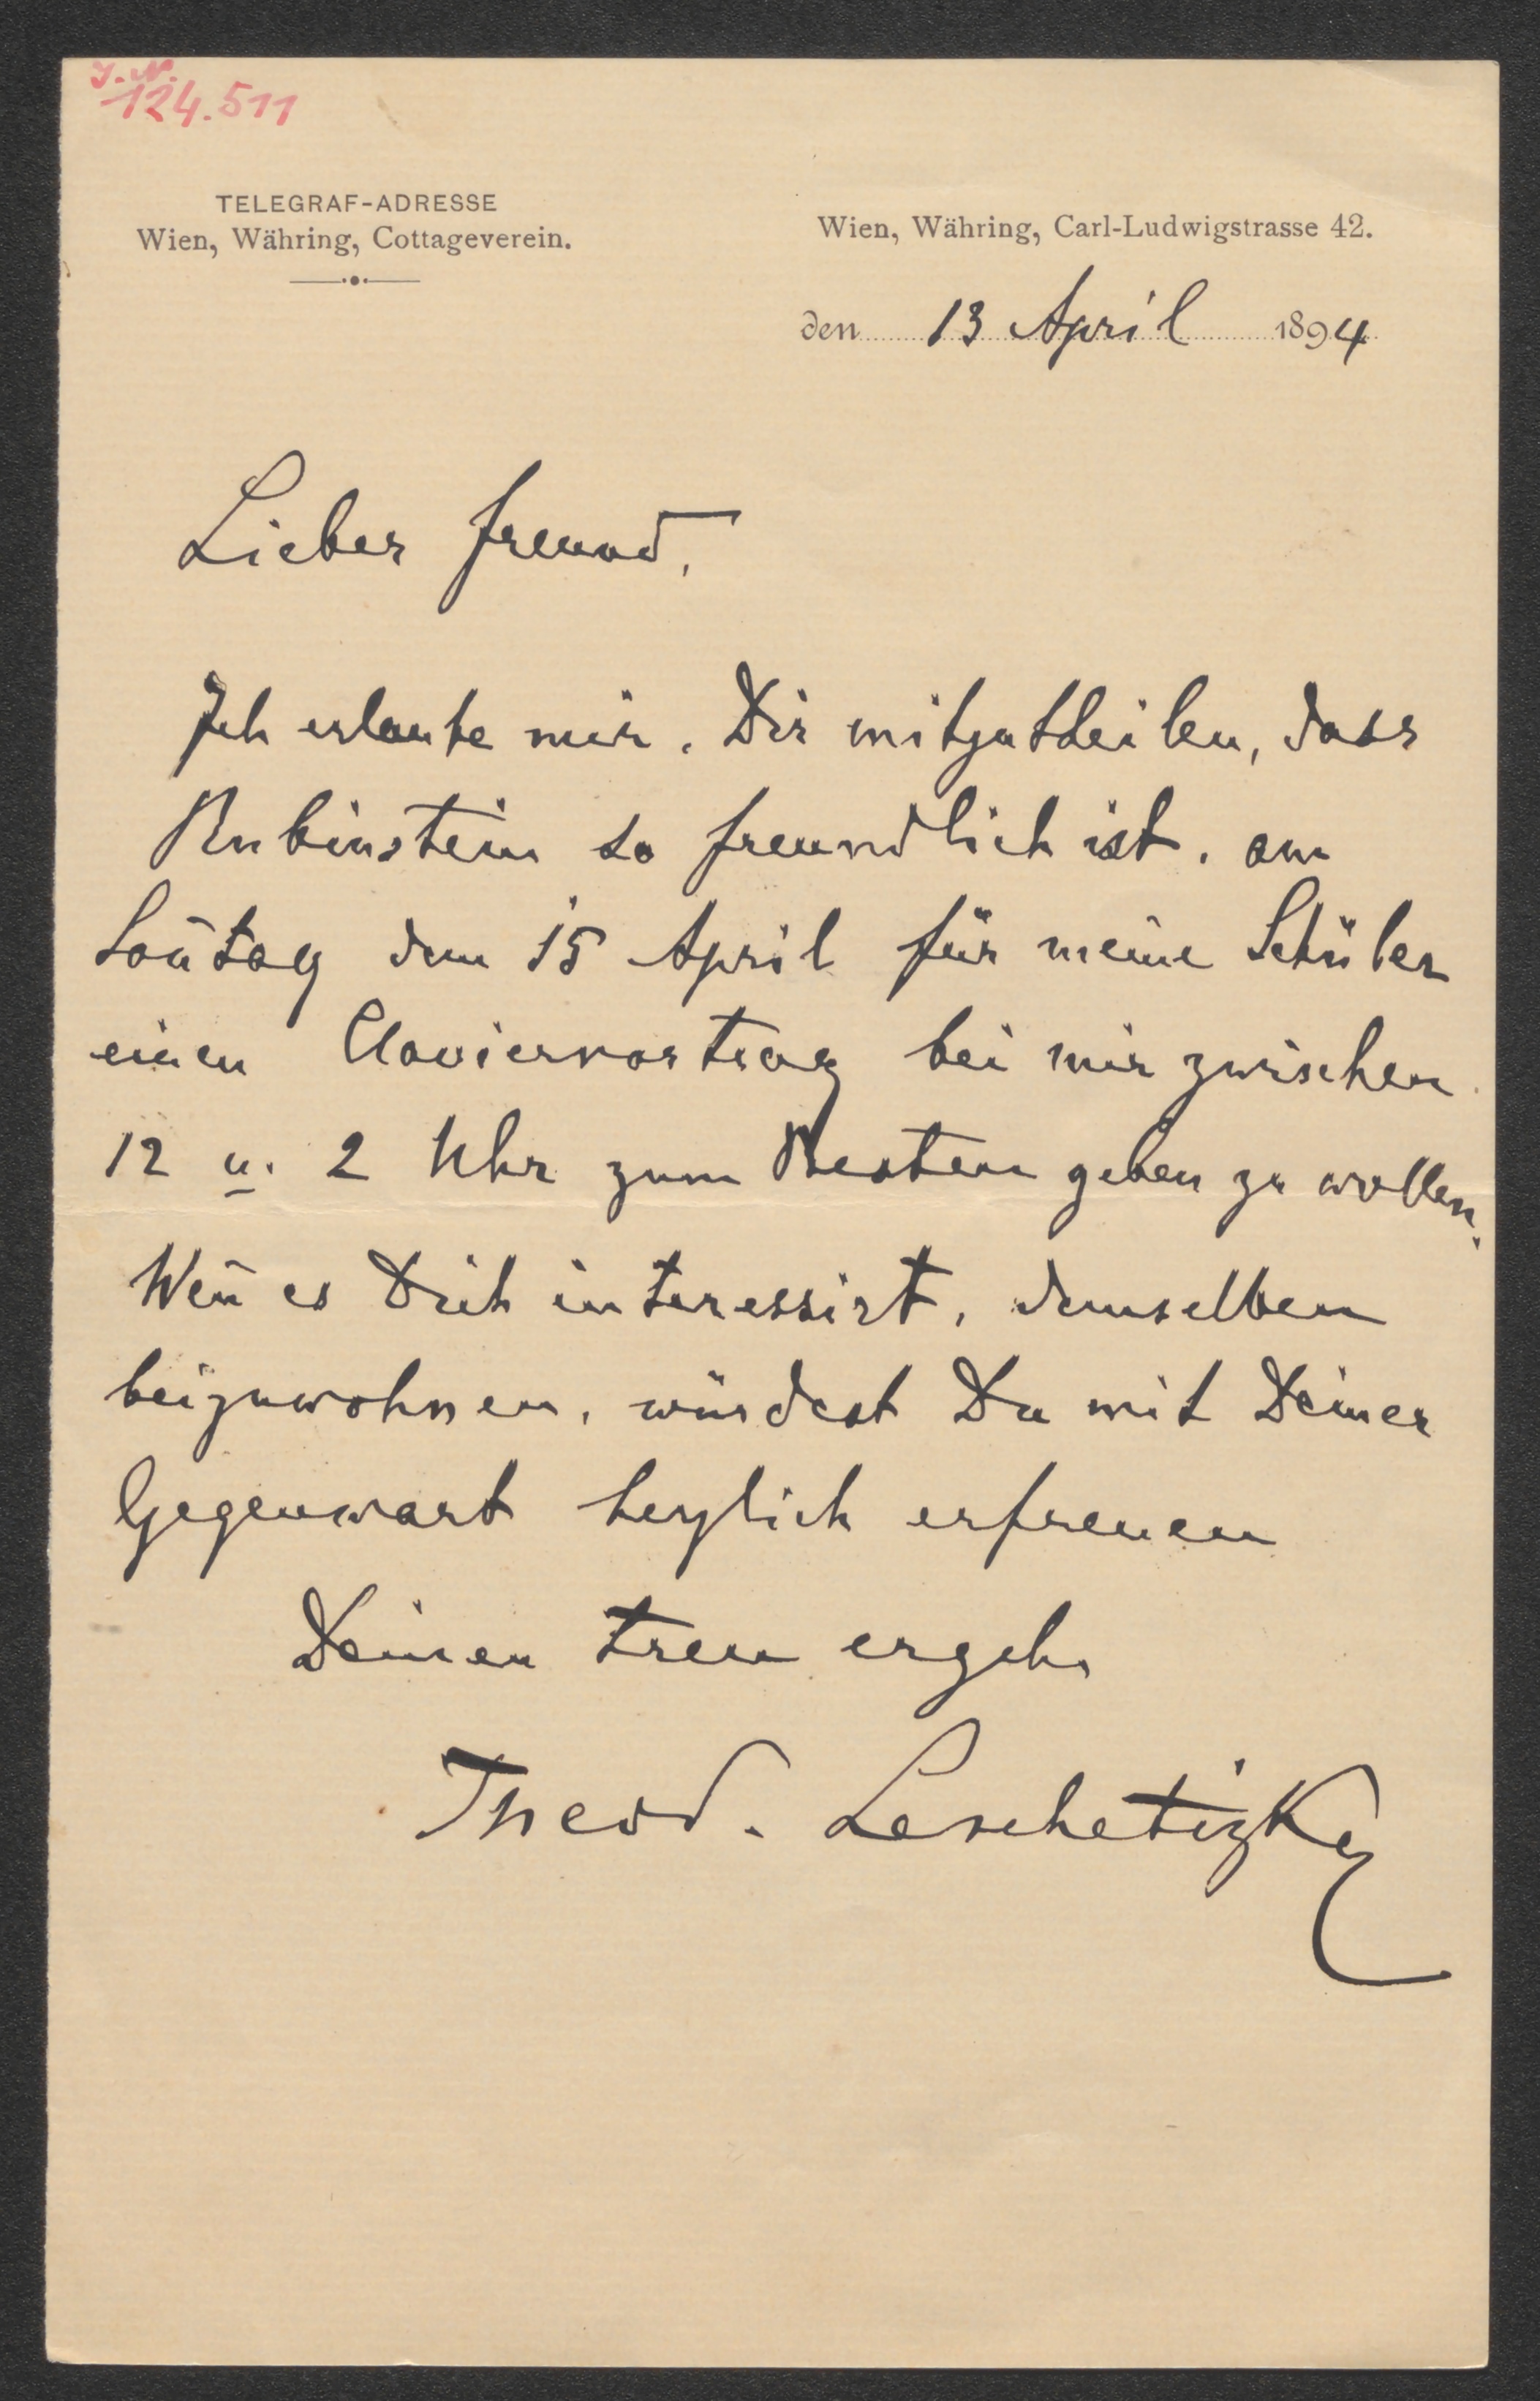 J. N.
124.511
TELEGRAF-ADRESSE
Wien, Währing, Cottageverein.
Wien, Währing, Carl-Ludwigstrasse 42.
den 13 April 1894
Lieber Freund,
Ich erlaube mir, Dir mitzutheilen, dass
Rubinstein so freundlich ist, am
Son̄tag den 15 April für meine Schüler
einen Claviervortrag bei mir zwischen
12 u. 2 Uhr zum Besten geben zu wollen.
Wen̄ es Dich interessirt, demselben
beizuwohnen, würdest Du mit Deiner
Gegenwart herzlich erfreuen
Deinen treu ergeb.
Theod. Leschetizky